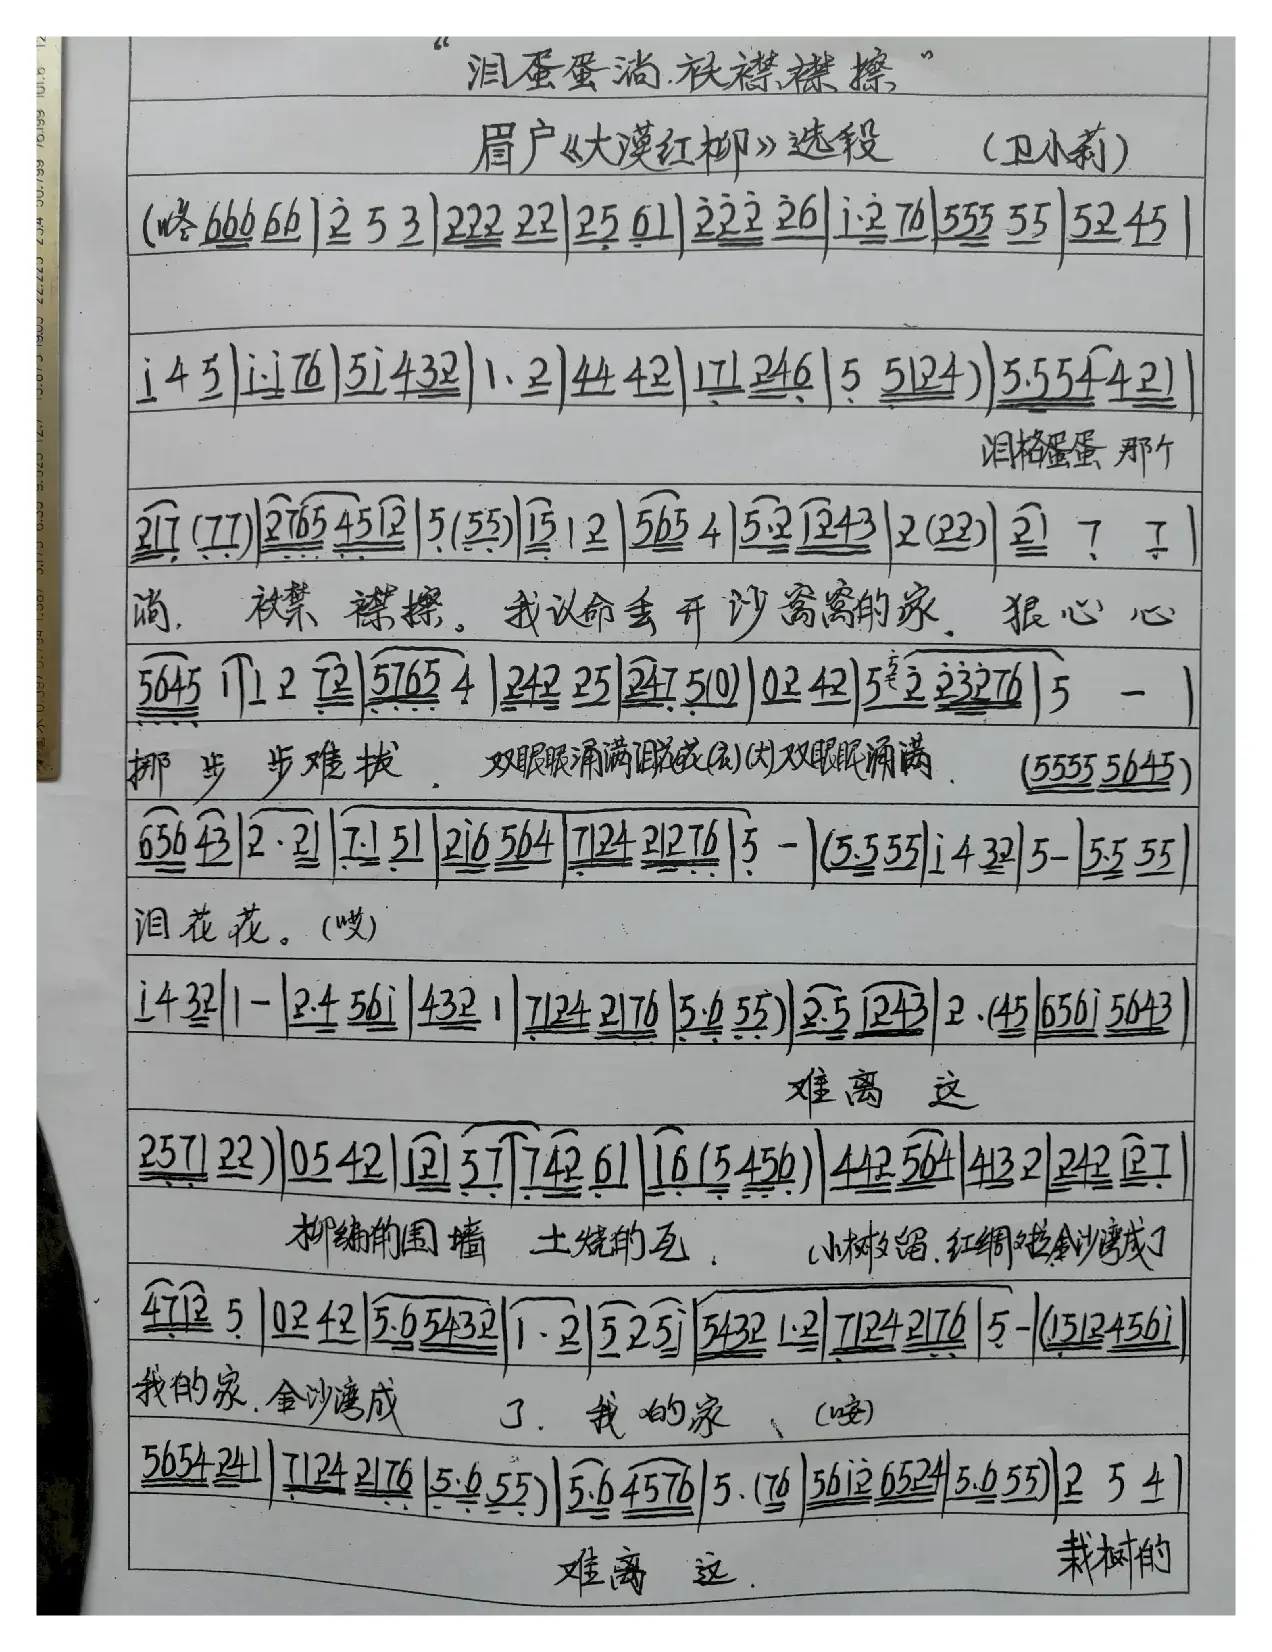 “泪蛋蛋淌.衣襟襟擦”
眉户《大漠红柳》选段 (卫小莉)
(咚 666 66|2̇ 5 3|222 22|25 61|2̇2̇2̇ 2̇6|i·2̇ 76|555 55|52 45|
i 4 5|i·i 76|5i 432|1·2|44 42|171 246|5 5124)|5·554 421|
泪格蛋蛋 那个
217 (77)|2765 4512|5(55)|15 12|565 4|5·2 1243|2(22)|21 7 7|
淌. 衣襟 襟擦。我认命丢开沙窝窝的家. 狠心心
5645 1|1 2 72|5765 4|242 25|247 5(0)|02 42|5 2̇ 2̇3̇2̇76|5 -|
挪步步难拔. 双眼眼涌满泪花花(衣)(大)双眼眼涌满. (5555 5645)
656 43|2·21|7·1 51|2i6 564|7124 2176|5 -|(5·5 55|i 4 32|5-|5·5 55|
泪花花。(哎)
i 4 32|1-|2·4 56i|432 1|7124 2176|5·6 55)|2·5 1243|2·(45|656i 5643|
难离这
2571 22)|05 42|121 57|742 61|16 (5 456)|442 564|413 2|242 127|
柳编的围墙 土烧的瓦. 小树文留.红绸文拉金沙湾成了
4712 5|02 42|5·6 5432|1·2|5 2 5i|5432 1·2|7124 2176|5-|(1512 456i|
我的家.金沙湾成 了.我的家、(咹)
5654 241|7124 2176|5·6 55)|5·6 4576|5·(76|56i2̇ 6524|5·6 55)|2 5 4|
难离这. 栽树的